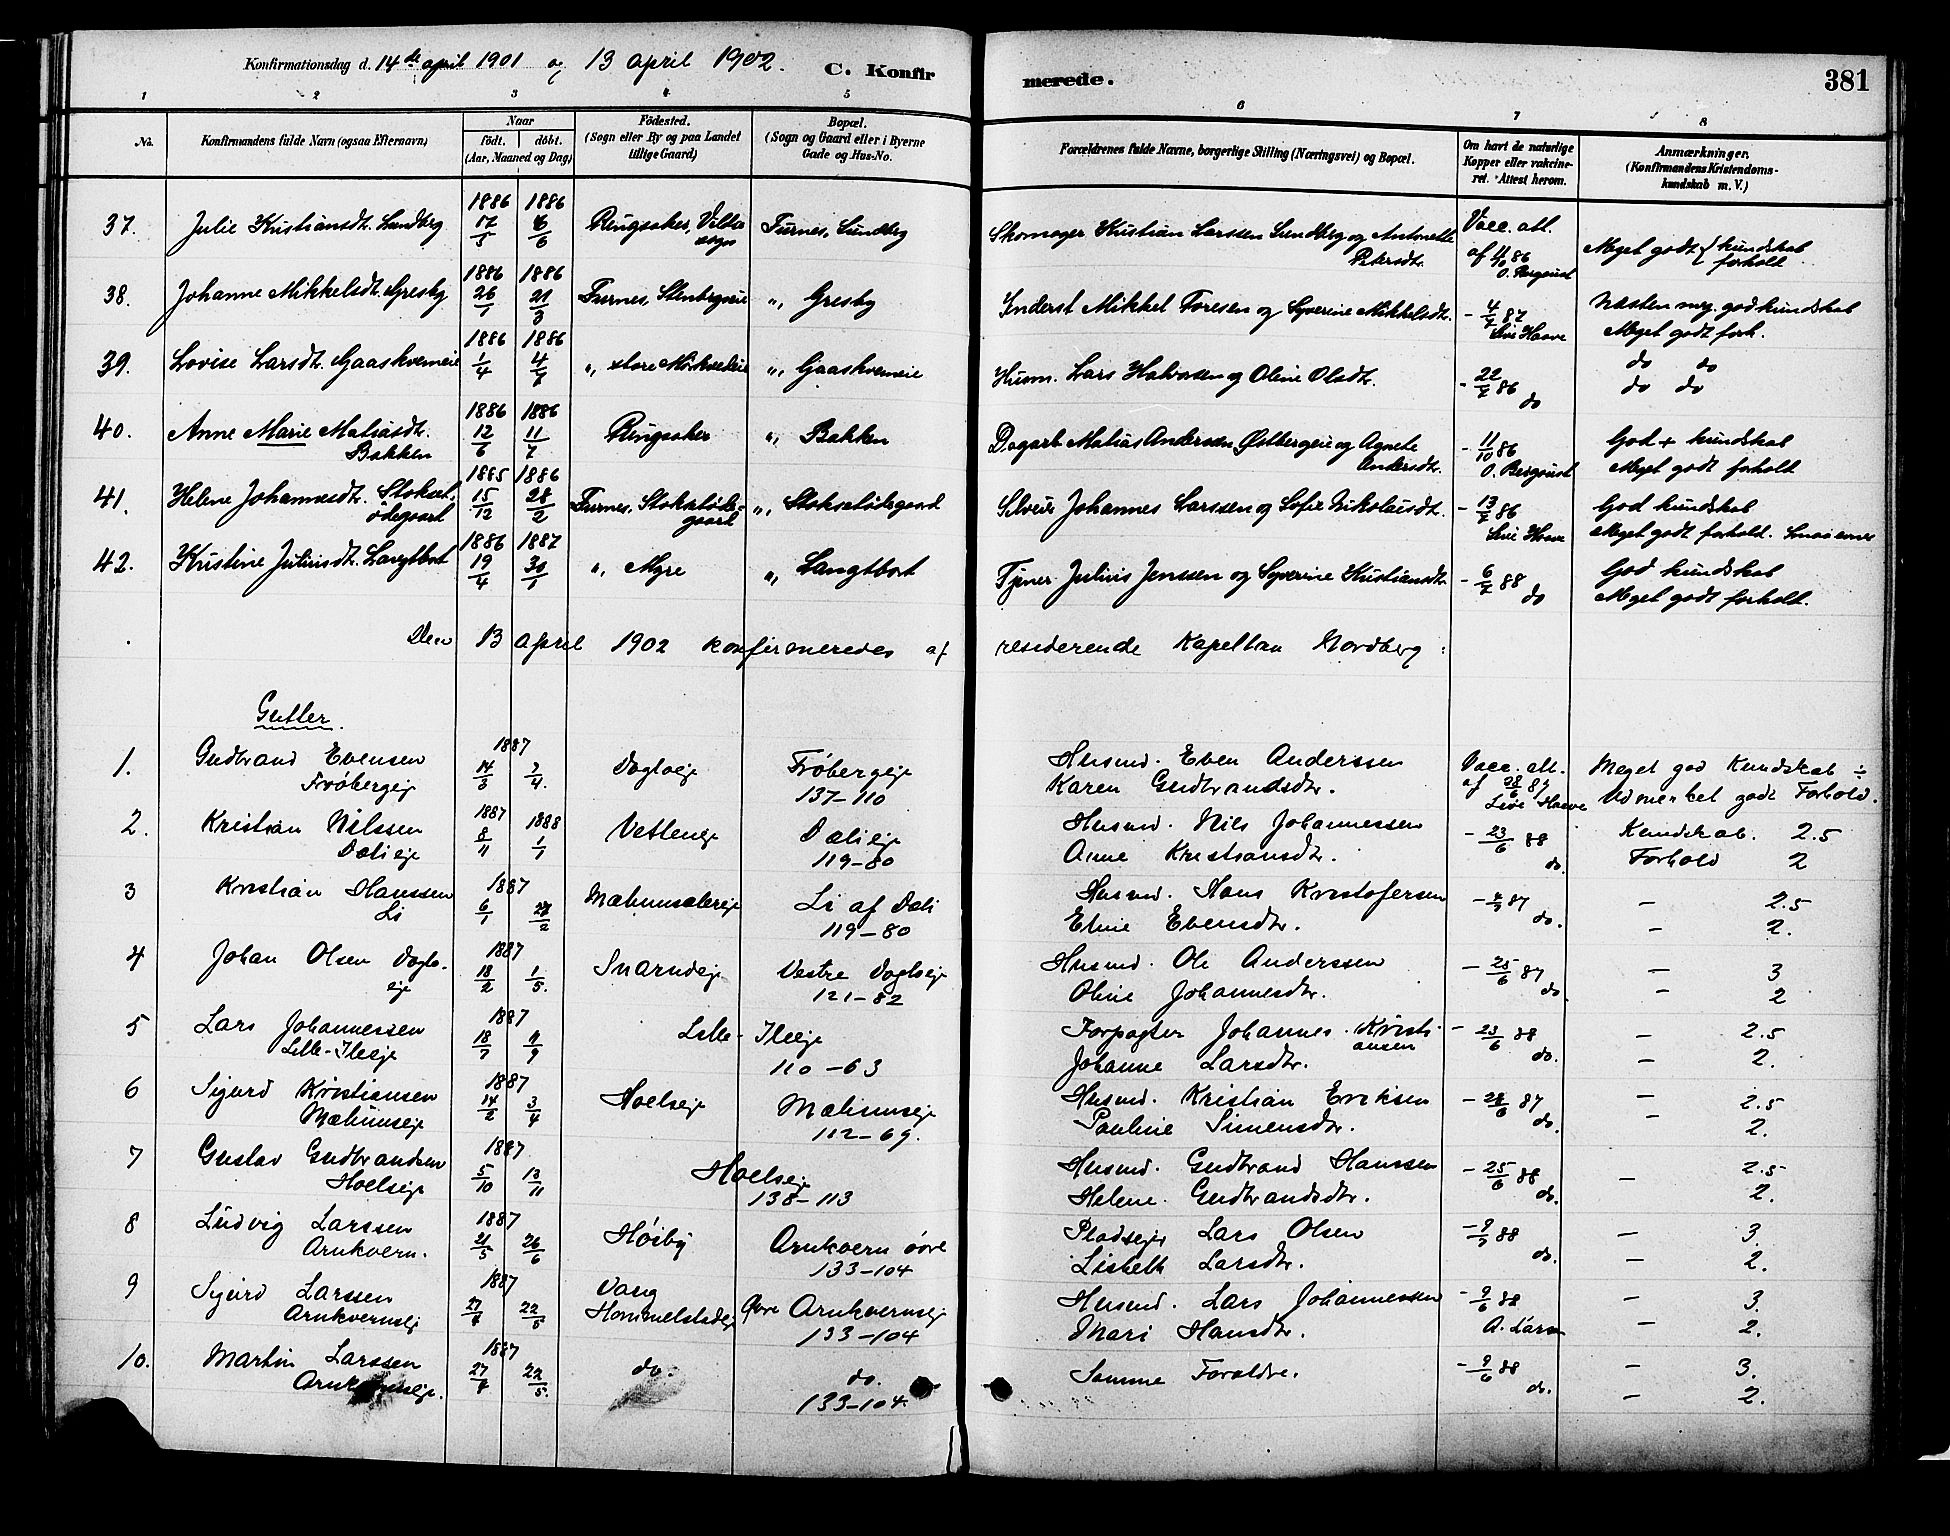 Konfirmationsdag d. 14de april 1901 og 13 april 1902. C. Konfirmerede. 381
1 2 3 4 5 6 7 8
No. Konfirmandens fulde Navn (ogsaa Efternavn) Naar født. døbt. (Aar, Maaned og Dag) Fødested. (Sogn eller By og paa Landet tillige Gaard) Bopæl. (Sogn og Gaard eller i Byerne Gade og Hus-No. Forældrenes fulde Navne, borgerlige Stilling (Næringsvei) og Bopæl. Om havt de naturlige Kopper eller vakcineret. Attest herom. Anmærkninger. (Konfirmandens Kristendomskundskab m. V.)
37. Julie Kristiansdt. Sundberg 1886 17/5 1886 6/6 Ringsaker, Furnes, Sundberg Skomager Kristian Larssen Sundberg og Antonette Petersdt. Vacc. att. af 4/10 86 O. Bergqust Meget godt kundskab forhold
38. Johanne Mikkelsdt. Gresby 1886 26/1 1886 21/3 Furnes, Stenbergeie ", Gresby Inderst Mikkel Toresen og Syverine Mikkelsdt. - 4/7 87 Sivi Haave Næsten meg. god kundskab Meget godt forh.
39. Lovise Larsdt. Gaaskverneie 1886 1/4 1886 4/7 ", store ", Gaaskverneie Husm. Lars Halvorsen og Oline Olsdt. - 22/7 86 do do do do do
40. Anne Marie Matiasdt. Bakken 1886 12/6 1886 11/7 Ringsaker ", Bakken Dagarb. Matias Anderssen Østbergeie og Agnete Andersdt. - 11/10 86 O. Bergqust God + kundskab Meget godt forhold
41. Helene Johannesdt. Stokset-ødegaard 1885 15/12 1886 28/2 Furnes, Stoksetødegaard ", Stoksetødegaard Selveier Johannes Larssen og Sofie Nikolaisdt. - 13/7 86 Sivi Haave God kundskab Meget godt forhold.
42. Kristine Juliusdt. Langtbort 1886 19/4 1887 30/1 ", Myre ", Langtbort Tjener Julius Jenssen og Syverine Kristiansdt. - 6/7 88 do God kundskab Meget godt forhold.
Den 13 april 1902 konfirmeredes af residerende Kapellan Nordberg:
Gutter.
1. Gudbrand Evensen Frøbergeje 1887 14/3 3/4. Dogloeje Frøbergeje 137-110 Husmd. Even Anderssen Karen Gudbrandsdtr. Vacc. att. af 28/6 87 Sivi Haave Meget god Kundskab ÷ Udmerket godt Forhold.
2. Kristian Nilssen Dælieje 1887 8/11 1888 1/1 Vetleneje Dælieje 119-80 Husmd. Nils Johannessen Anne Kristiansdtr. - 23/6 88 do. Kundskab. 2.5 Forhold 2
3 Kristian Hanssen Li 1887 6/1 27/2 Mælumsætereje Li af Dæli 119-80 Husmd. Hans Kristofersen Eline Evensdtr. 87 do. - 2.5 - 2.
4 Johan Olsen Dogloeje 1887 18/2 1/5. Snarudeje Vestre Dogloeje 121-82 Husmd. Ole Anderssen Oline Johannesdtr. - 25/6 87 do. - 3 - 2
5 Lars Johannessen Lille-Ileeje 1887 18/7 11/9 Lille-Ileeje 110-63 Forpagter Johannes Kristiansen Johanne Larsdtr. - 23/6 88 do. - 2.5 - 2.
6 Sigurd Kristiansen Mælumseje 1887 14/2 3/4 Hoelseje Mælumseje 112-69. Husmd. Kristian Eriksen Pauline Simensdtr. - 28/6 87 do. - 2.5 - 2.
7 Gustav Gudbrandsen Hoelseje 1887 5/10 13/11 Hoelseje 138-113 Husmd. Gudbrand Hanssen Helene Gudbrandsdtr. - 25/6 88 do. - 2.5 2.
8 Ludvig Larssen Arnkvern. 1887 21/5 26/6 Høsby Arnkvern øvre 133-104 Pladsejer Lars Olsen Lisbeth Larsdtr. - 9/7 88 do. - 3 - 2.
9 Sigurd Larssen Arnkvernseje 1887 27/4 22/5 Vang Hommelstadeje Øvre Arnkvernseje 133-104 Husmd. Lars Johannessen Mari Hansdtr. - 9/6 88 A. Larsen - 3. - 2.
10. Martin Larssen Arnkvernseje. 1887 27/4 22/5. do. do. 133-104. Samme Forældre. - 9/6 88 do. - 3. - 2.